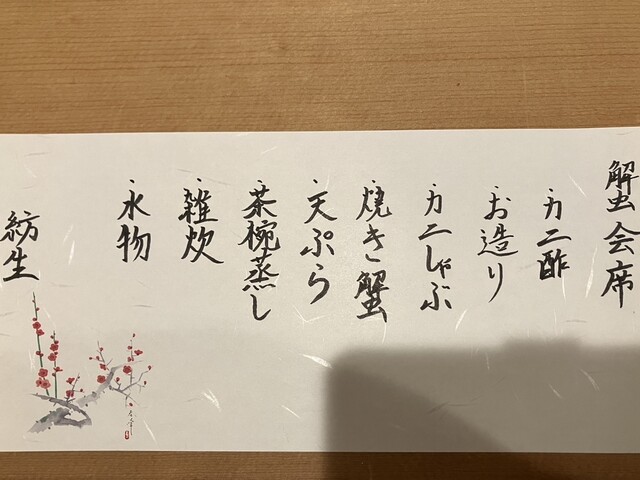 蟹会席
・カニ酢
・お造り
・カニしゃぶ
・焼き蟹
・天ぷら
・茶椀蒸し
・雑炊
・水物
紡生